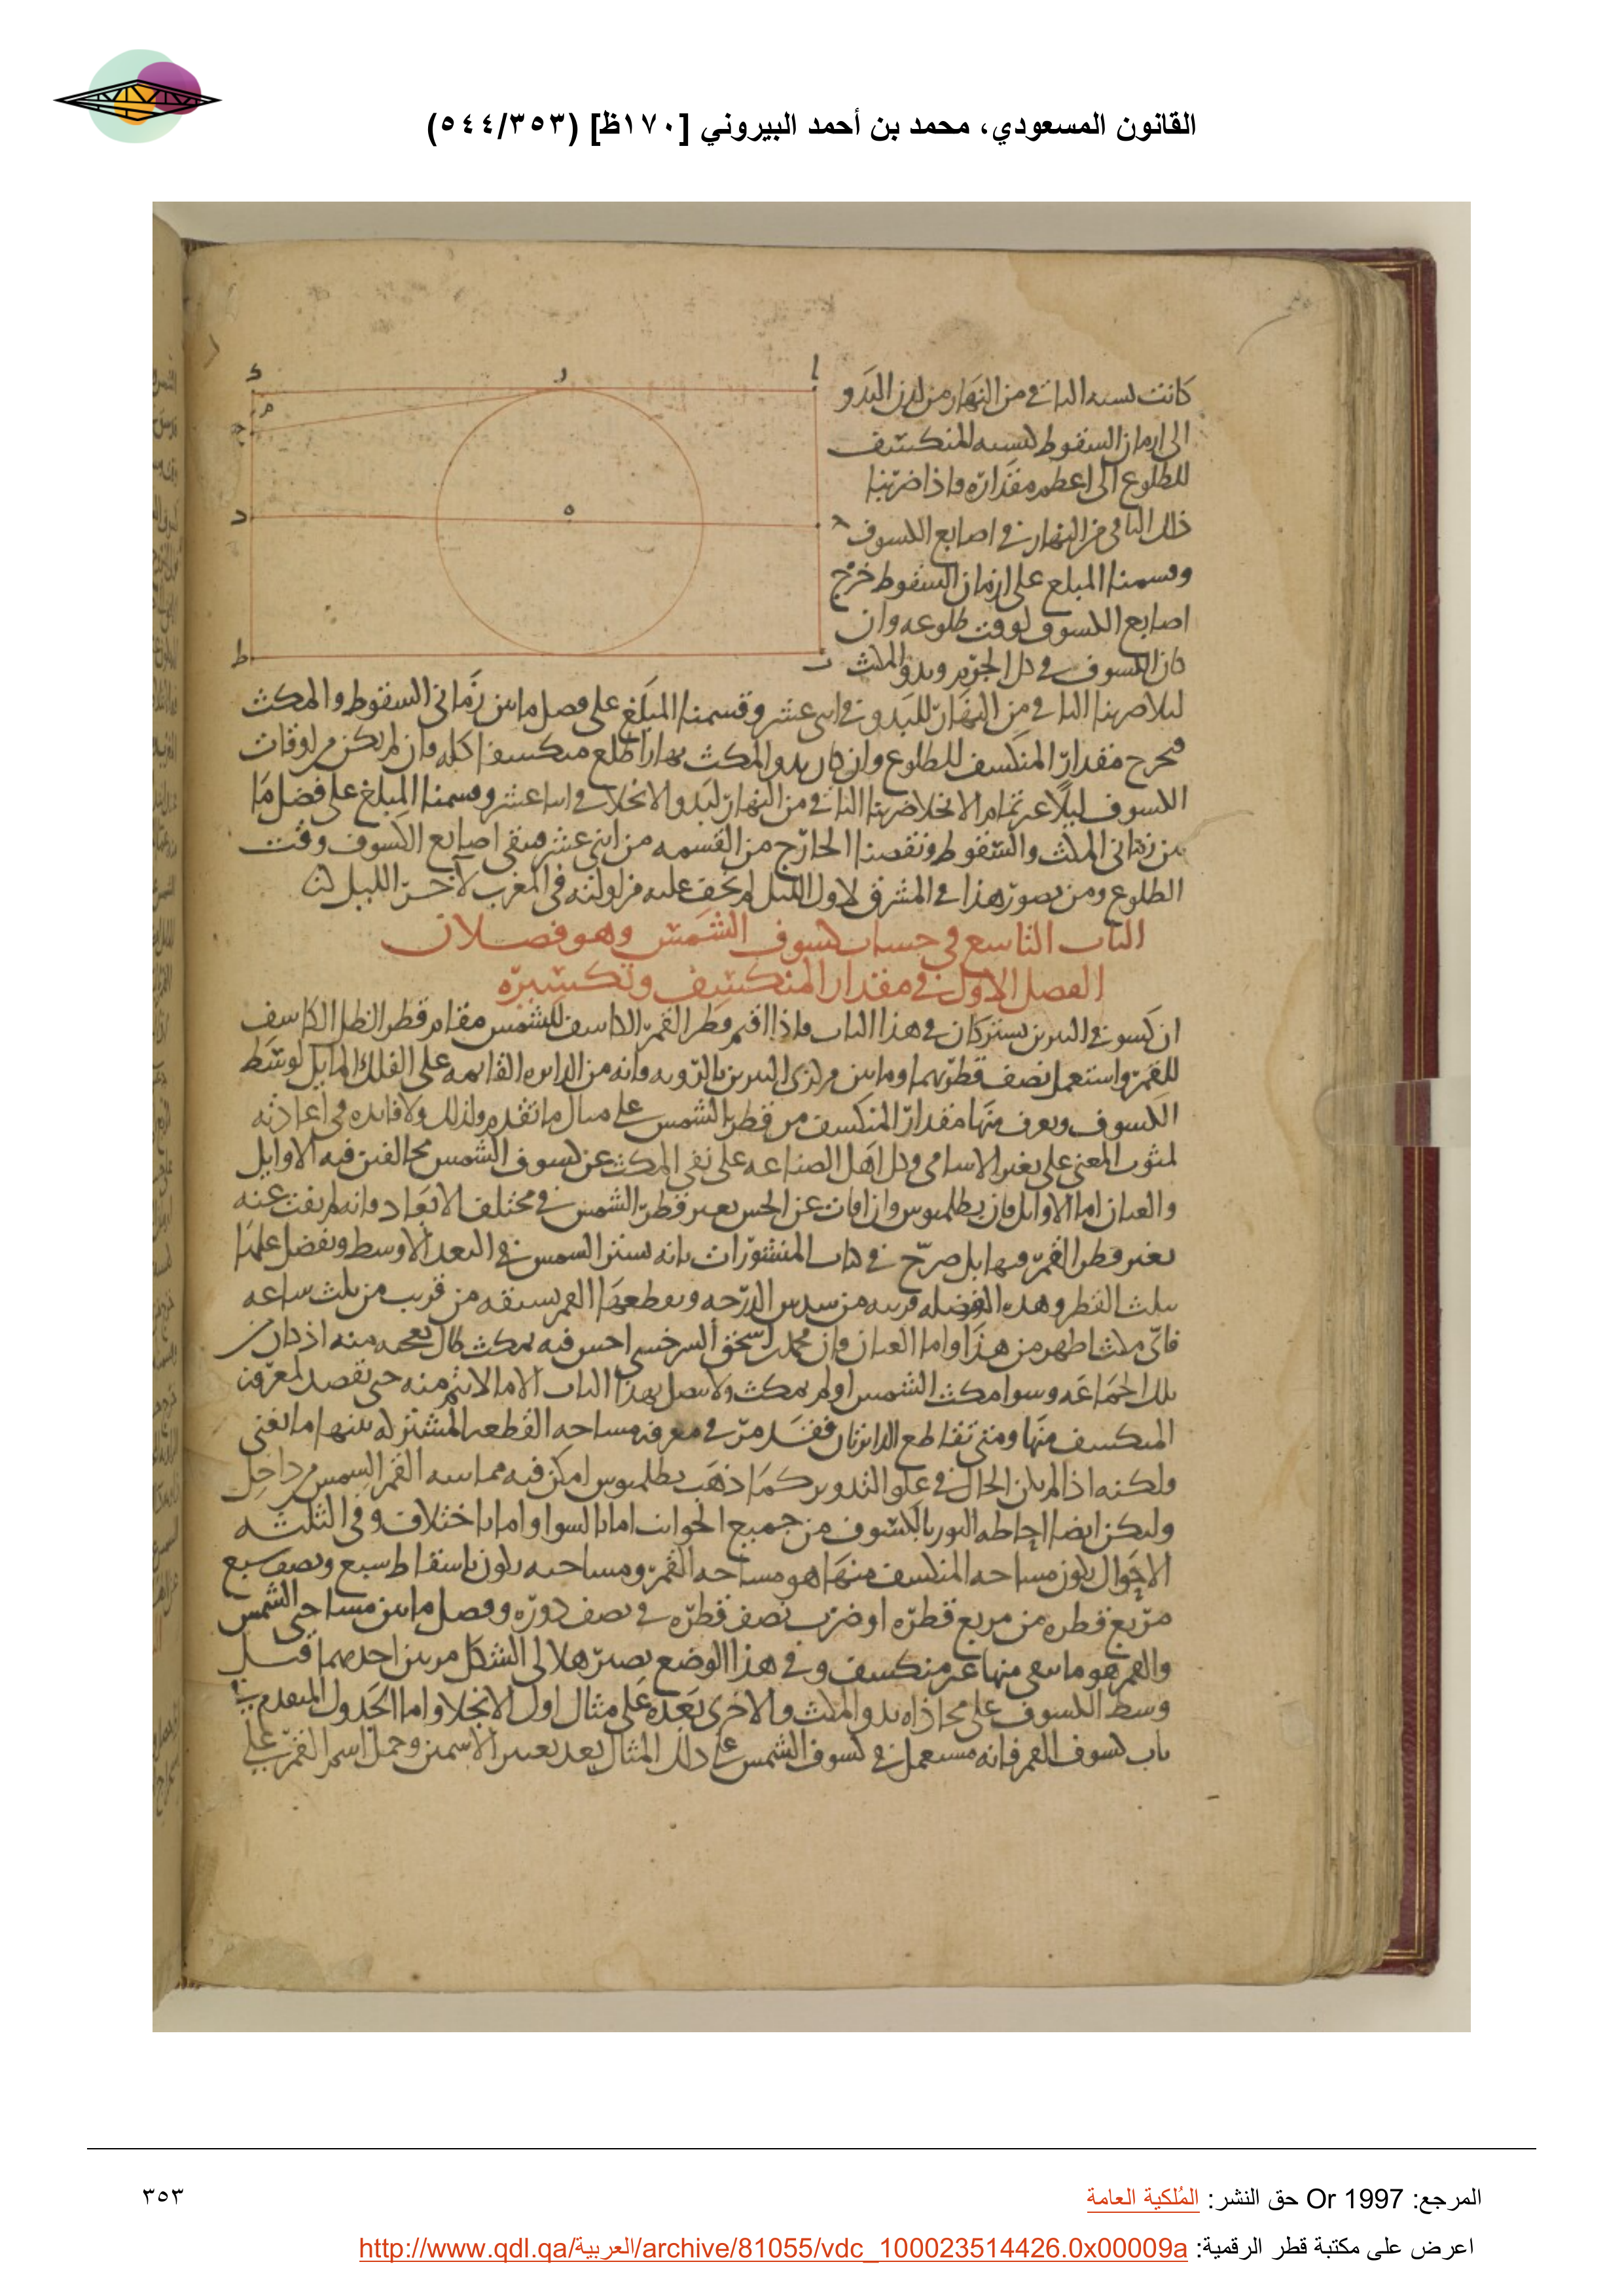 القانون المسعودي، محمد بن أحمد البيروني [١٧٠ظ] (٥٤٤/٣٥٣)
كانت لنسبه الباقي من النهار من لدن البدو
الى ازمان السقوط كنسبه المنكسف
للطلوع الى اعظم مقداره فاذا ضربنا
ذلك الباقي من النهار في اصابع الكسوف
وقسمنا المبلغ على ازمان السقوط خرج
اصابع الكسوف لوقت طلوعه وان
كان الكسوف في كل الجرم وبدو المكث
ليلا ضربنا الباقي من النهار للبدو في اثنى عشر وقسمنا المبلغ على فضل ما بين زماني السقوط والمكث
فيخرج مقدار المنكسف للطلوع وان كان بدو المكث نهارا طلع منكسفا كله فان لم يكن من اوقات
الكسوف ليلا غير تمام الانجلا ضربنا الباقي من النهار لبدو الانجلا في اثنا عشر وقسمنا المبلغ على فضل ما
بين زماني المكث والسقوط ونقصنا الخارج من القسمه من اثني عشر فيبقى اصابع الكسوف وقت
الطلوع ومن تصور هذا في المشرق لاول الليل لم يخف عليه مزاولته في المغرب لاخر الليل
الباب التاسع في حساب كسوف الشمس وهو فصلان
الفصل الاول في مقدار المنكسف وتكسيره
ان كسوفي النيرين يشتركان في هذا الباب فاذا اقيم قطر القمر الكاسف للشمس مقام قطر الظل الكاسف
للقمر واستعمل نصف قطريهما وما بين مركزي النيرين بالرويه فانه من الدايره القايمه على الفلك المايل لوسط
الكسوف ويعرف منها مقدار المنكسف من قطر الشمس على مثال ما تقدم ولذلك ولا فايده في اعادته
لثبوت المعنى على تغير الاسامي وكل اهل الصناعه على نفي المكث عن كسوف الشمس مخالفين فيه الاوايل
والعيان اما الاوايل فان بطلميوس وان افات عن الحس تغير قطر الشمس في مختلف الابعاد فانه لم يفت عنه
تغير قطر القمر فيها بل صرح في كتاب المنشورات بانه يستر الشمس في البعد الاوسط ويفضل عليها
بثلث القطر وهذه الفضله قريبه من سدس الدرجه ويقطعها القمر بسبقه من قريب من ثلث ساعه
فاي مكث اظهر من هذا واما العيان فان محمد بن اسحق السرخسي احس فيه بمكث طال تعجبه منه اذ كان من
تلك الجماعه وسوا مكث الشمس او لم يمكث ولا يتصل بهذا الباب الا ما لا يتم منه حتى تقصد لمعرفه
المنكسف منها ومتى تقاطع الدايرتان فقد مر في معرفه مساحه القطعه المشتركه بينهما ما يغني
ولكنه اذا لم يكن الحال في علو التدوير كما ذهب بطلميوس امكن فيه مماسه القمر الشمس من داخل
وليكن ايضا احاطه النور بالكسوف من جميع الجوانب اما بالسوا واما باختلاف وفي الثلثه
الاحوال يكون مساحه المنكسف منها هو مساحه القمر ومساحته يكون باسقاط سبع ونصف سبع
مربع قطره من مربع قطره او ضرب نصف قطره في نصف دوره وفضل ما بين مساحتي الشمس
والقمر هو ما يبقى منها غير منكسف وفي هذا الوضع يصير هلالي الشكل مرتين احديهما قبل
وسط الكسوف على محاذاه بدو المكث والاخرى بعده على مثال اول الانجلا واما الجدول المتقدم في
باب كسوف القمر فانه مستعمل في كسوف الشمس على ذلك المثال بعد تغيير الاسمين وحمل اسم القمر على
ا
ر
ك
م
ح
ه
د
ط
ب
المرجع: Or 1997 حق النشر: المُلكية العامة
٣٥٣
اعرض على مكتبة قطر الرقمية: http://www.qdl.qa/العربية/archive/81055/vdc_100023514426.0x00009a